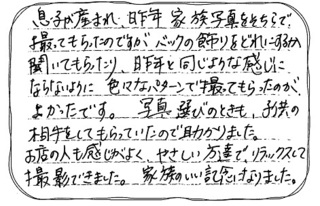 息子が産まれ、昨年 家族写真をそちらで、
撮ってもらったのですが バックの飾りをどれにするか
聞いてもらったり、昨年と同じような感じに
ならないように 色々なパターンで撮ってもらったのが、
よかったです。 写真選びのときも、お子供の
相手をしてもらっていたので助かりました。
お店の人も感じがよく、やさしい方達で、リラックスして
撮影できました。 家族のいい記念になりました。